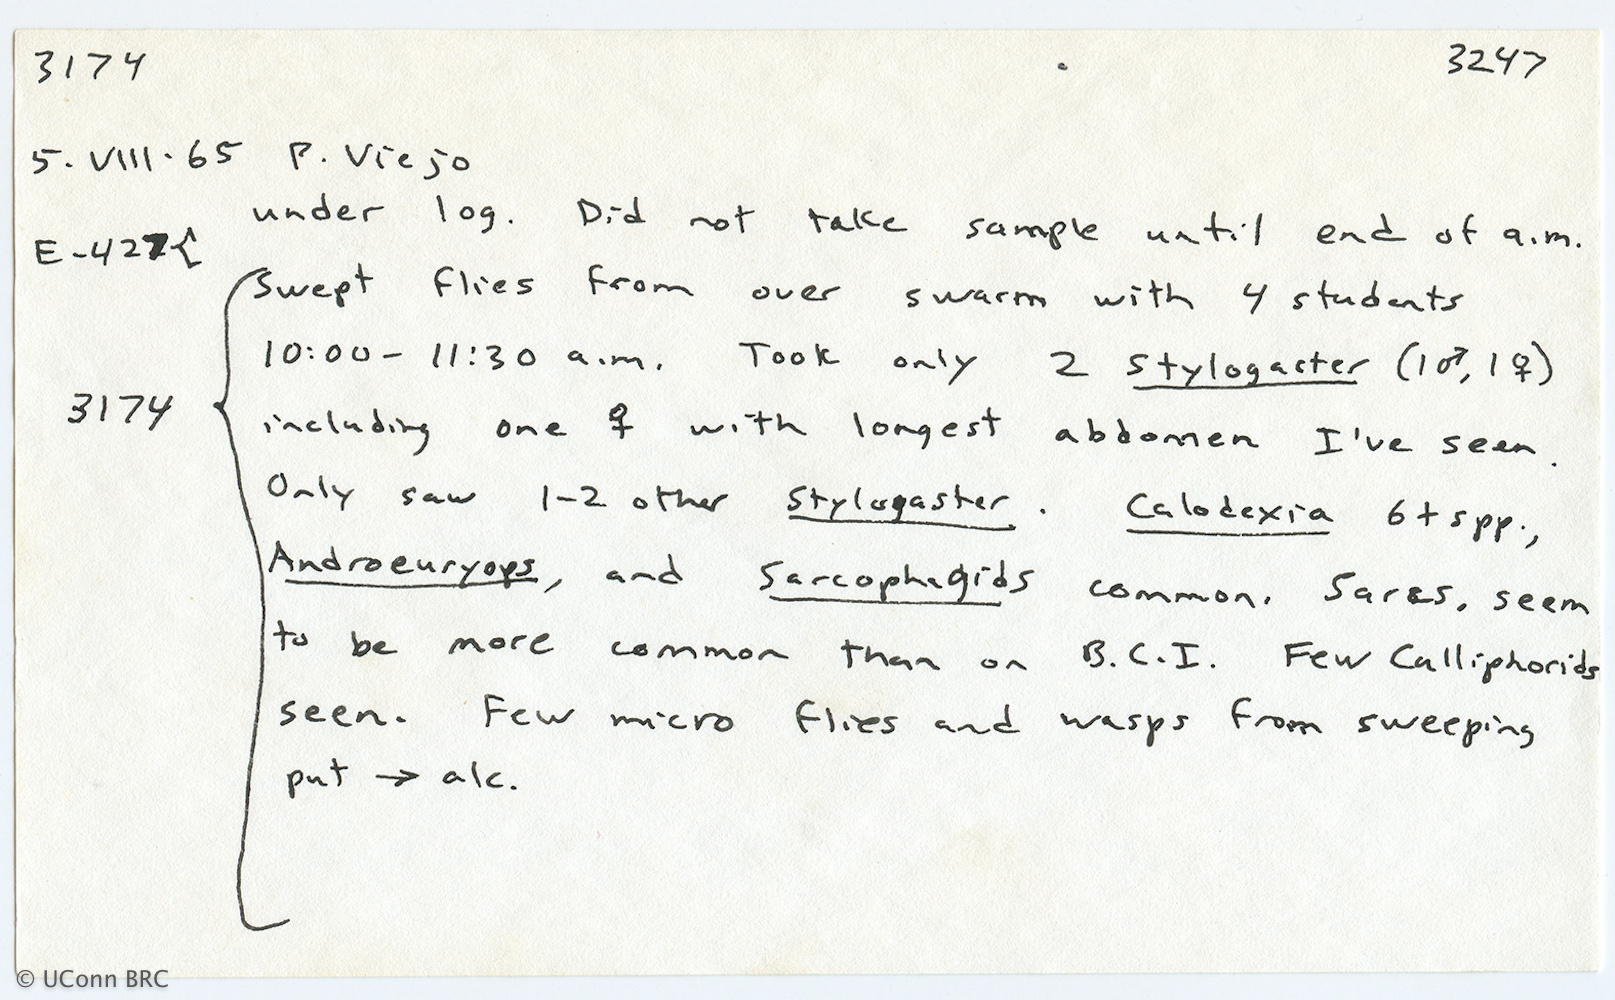 3174 3247
5. VIII. 65 P. Viejo
under log. Did not take sample until end of a.m.
E-427 {
Swept flies from over swarm with 4 students
10:00 - 11:30 a.m. Took only 2 Stylogaster (1♂, 1♀)
3174 { including one ♀ with longest abdomen I've seen.
Only saw 1-2 other Stylogaster. Calodexia 6+ spp.,
Androeuryops, and Sarcophagids common. Sarcs. seem
to be more common than on B.C.I. Few Calliphorids
seen. Few micro flies and wasps from sweeping
put → alc.
© UConn BRC